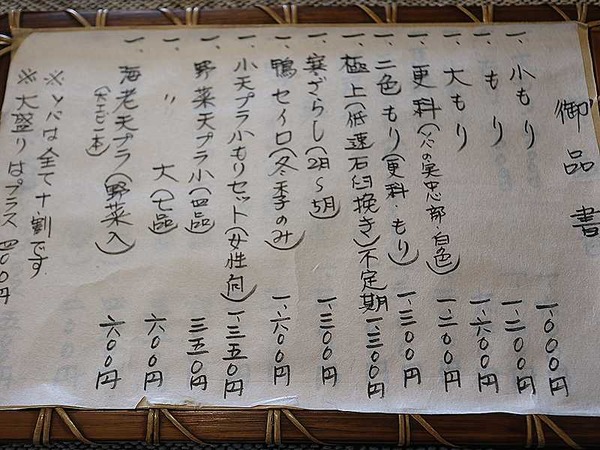 御品書
一、小もり 一、〇〇〇円
一、もり 一、二〇〇円
一、大もり 一、六〇〇円
一、更科(ソバの実中心部・白色) 一、二〇〇円
一、二色もり(更科・もり) 一、三〇〇円
一、極上(低速石臼挽き)不定期 一、三〇〇円
一、寒ざらし(2月〜5月) 一、三〇〇円
一、鴨セイロ(冬季のみ) 一、六〇〇円
一、小天プラ小もりセット(女性向) 一、三五〇円
一、野菜天プラ小(四品) 三五〇円
一、〃 大(七品) 六〇〇円
一、海老天プラ(野菜入) 六〇〇円
(大エビ二本)
※ソバは全て十割です
※大盛りはプラス四〇〇円